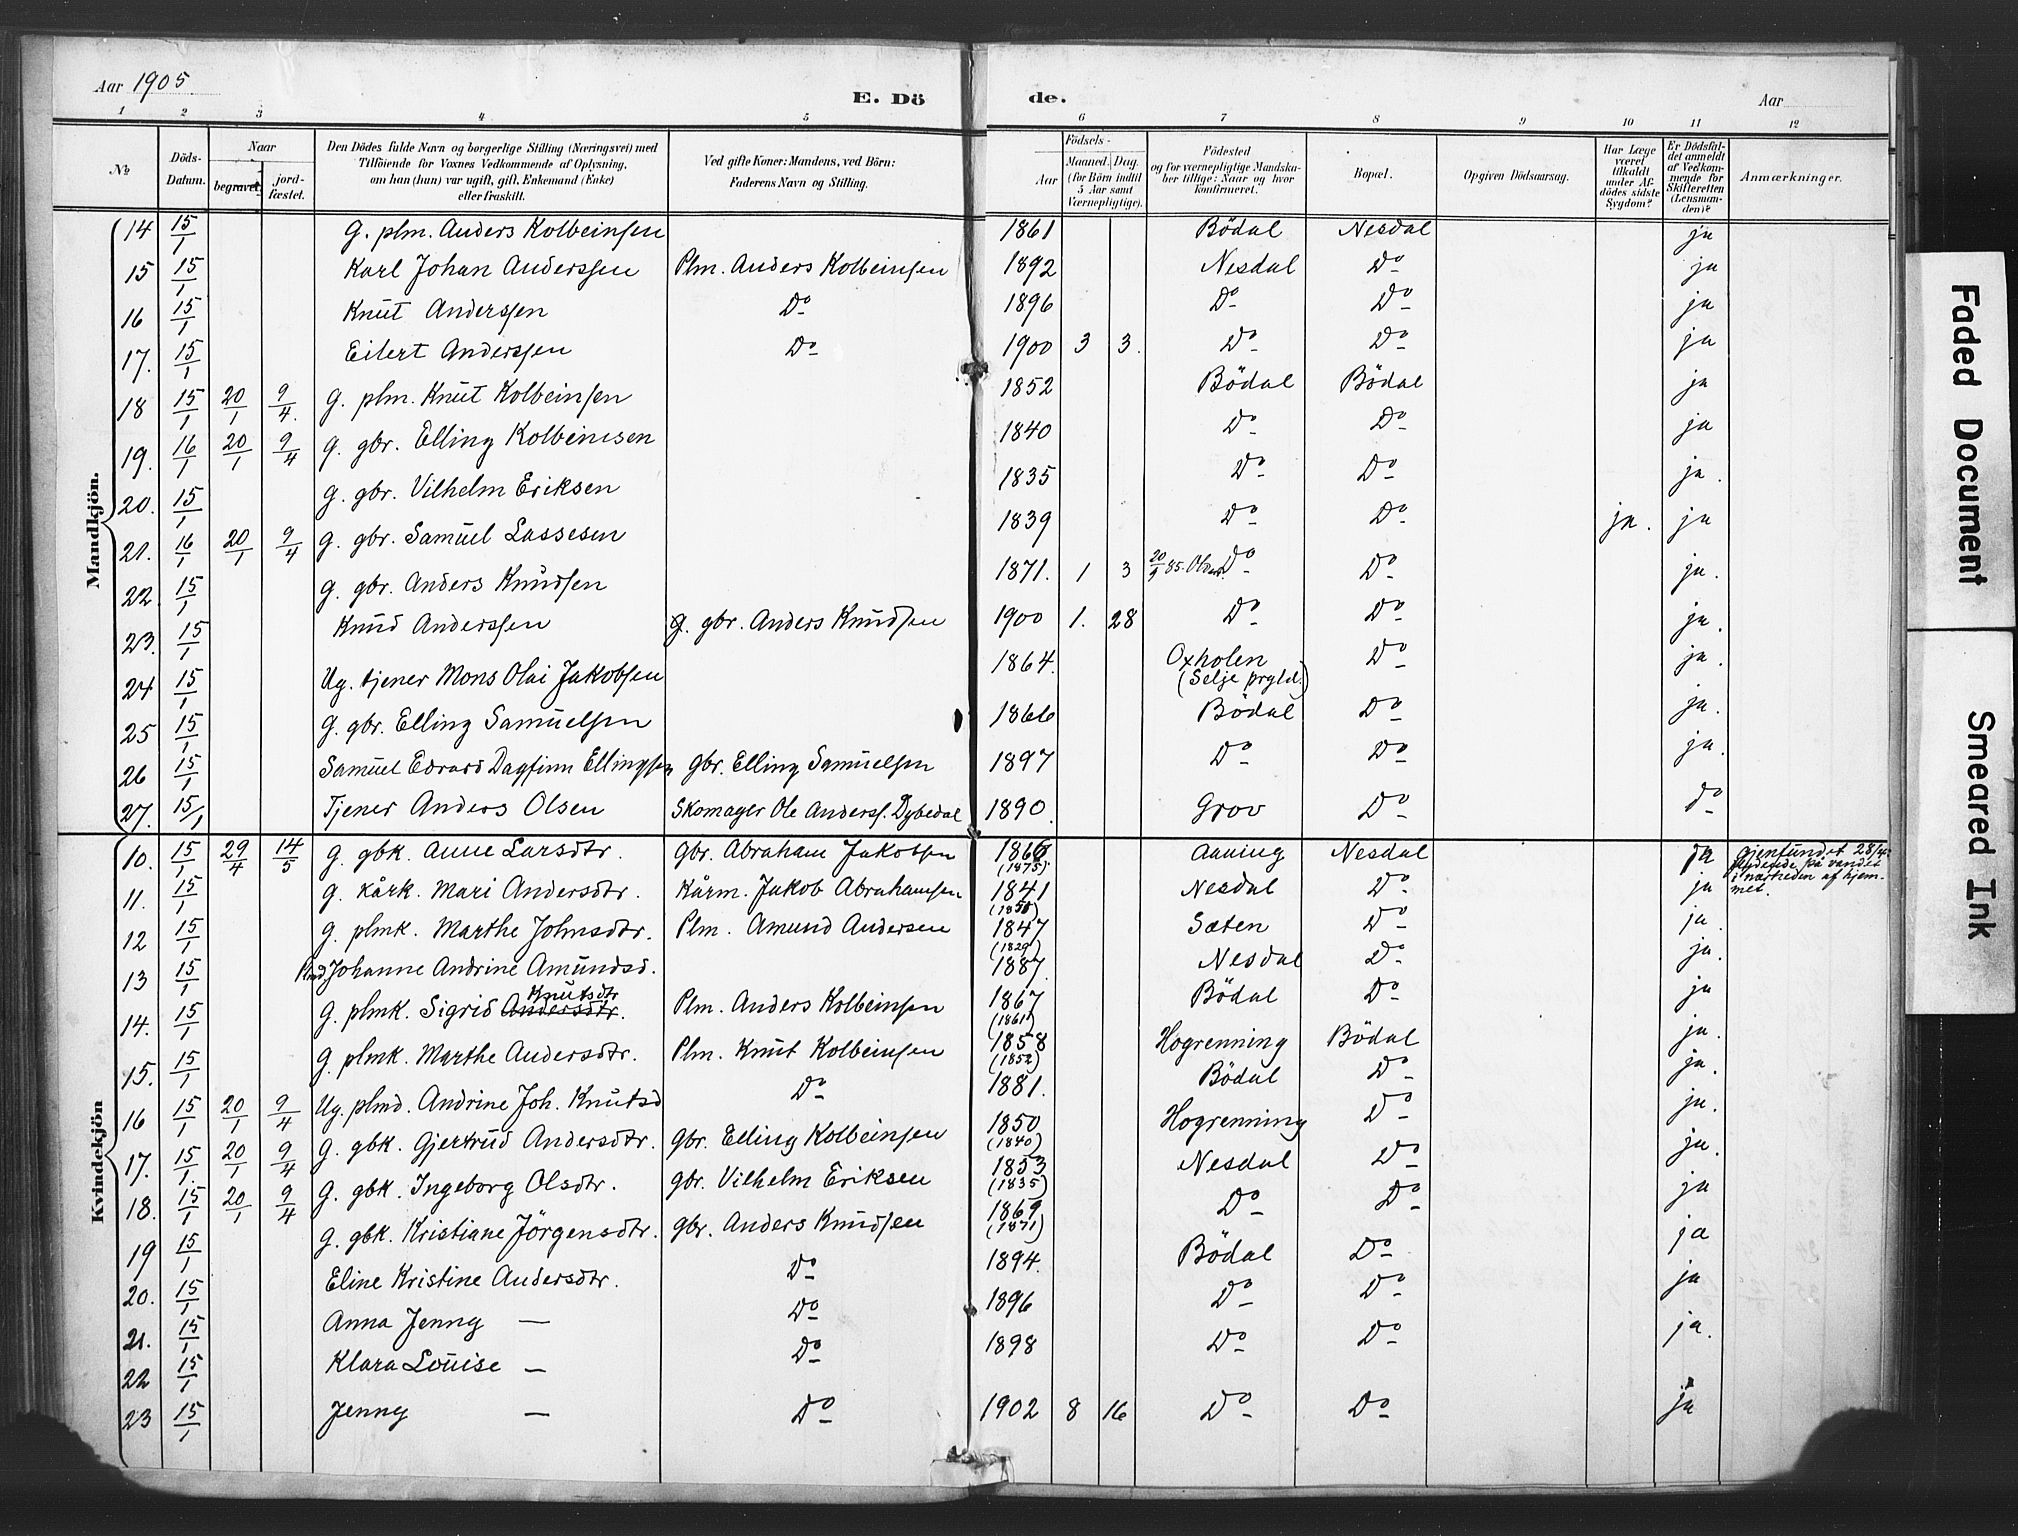 Aar 1905.
E. Dö de.
Aar
1 2 3 4 5 6 7 8 9 10 11 12
№ Döds-Datum. Naar begravet. jord-fæstet. Den Dödes fulde Navn og borgerlige Stilling (Næringsvei) med Tilföiende for Voxnes Vedkommende af Oplysning, om han (hun) var ugift, gift, Enkemand (Enke) eller fraskilt. Ved gifte Koner: Mandens, ved Börn: Faderens Navn og Stilling. Födsels- Aar Maaned. Dag. (for Börn indtil 5 Aar samt Værnepligtige). Födested og for værnepligtige Mandskaber tillige: Naar og hvor konfirmeret. Bopæl. Opgiven Dödsaarsag. Har Læge været tilkaldt under Afdödes sidste Sygdom? Er Dödsfaldet anmeldt af Vedkommende for Skifteretten (Lensmanden)? Anmærkninger.
Mandkjön.
14 15/1 G. plm. Anders Kolbeinsen 1861 Bödal Nesdal ja
15 15/1 Karl Johan Anderssen Plm. Anders Kolbeinsen 1892 Nesdal Do ja
16 15/1 Knut Anderssen Do 1896 Do Do ja
17. 15/1 Eilert Anderssen Do 1900 3 3. Do Do ja
18 15/1 20/1 9/4. G. plm. Knut Kolbeinsen 1852 Bödal Bödal ja
19. 16/1 20/1 9/4 G. gbr. Elling Kolbeinsen 1840 Do Do ja
20. 15/1 G. gbr. Vilhelm Eriksen 1835 Do Do ja.
21. 16/1 20/1 9/4 G. gbr. Samuel Lassesen 1839 Do Do ja. ja
22. 15/1 G. gbr. Anders Knudsen 1871. 1 3 20/9 85. Olden. Do Do ja.
23. 15/1 Knud Anderssen G. gbr. Anders Knudsen 1900 1. 28 Do Do ja.
24 15/1 Ug. tjener Mons Olai Jakobsen 1864. Oxholen (Selje prgld.) Do ja.
25 15/1 G. gbr. Elling Samuelsen 1866 Bödal Do ja.
26 15/1 Samuel Edvard Dagfinn Ellingsen gbr. Elling Samuelsen 1897 Do Do ja.
27. 15/1 Tjener Anders Olsen Skomager Ole Anderss. Dybedal 1890. Grov Do Do
Kvindekjön
10. 15/1 29/4 14/5 G. gbk. Anne Larsdtr. Gbr. Abraham Jakobsen 1866 (1875) Aaning Nesdal ja Gjenfundet 28/4 flydende på vandet i nærheden af hjemmet.
11. 15/1 G. kårk. Mari Andersdtr. Kårm. Jakob Abrahamsen 1841 Nesdal Do ja
12 15/1 G. plmk. Marthe Johnsdtr. Plm. Amund Andersen 1847 Sæten Do ja.
13 15/1 Johanne Andrine Amundsd. 1887. Nesdal Do ja.
14. 15/1 G. plmk. Sigrid Andersdtr. Knutsdtr Plm. Anders Kolbeinsen 1867 (1861) Bödal Do ja
15. 15/1 G. plmk. Marthe Andersdtr. Plm. Knut Kolbeinsen 1858 (1852) Hogrenning Bödal ja.
16 15/1 20/1 9/4 Ug. plmd. Andrine Joh. Knutsd Do 1881. Bödal Do ja.
17. 15/1. 20/1 9/4 G. gbk. Gjertrud Andersdtr. Gbr. Elling Kolbeinsen 1850 (1840) Hogrenning Do ja.
18. 15/1 20/1 9/4 G. gbk. Ingeborg Olsdtr. gbr. Vilhelm Eriksen 1853 (1835) Nesdal Do ja.
19 15/1 G. gbk. Kristiane Jörgensdtr. gbr. Anders Knudsen 1869 (1871) Do Do ja
20. 15/1 Eline Kristine Andersdtr. Do 1894. Bödal Do ja
21. 15/1 Anna Jenny — Do 1896 Do Do ja
22 15/1 Klara Louise — Do 1898 Do Do ja.
23 15/1 Jenny — Do 1902 8 16 Do Do ja
Faded Document
Smeared Ink